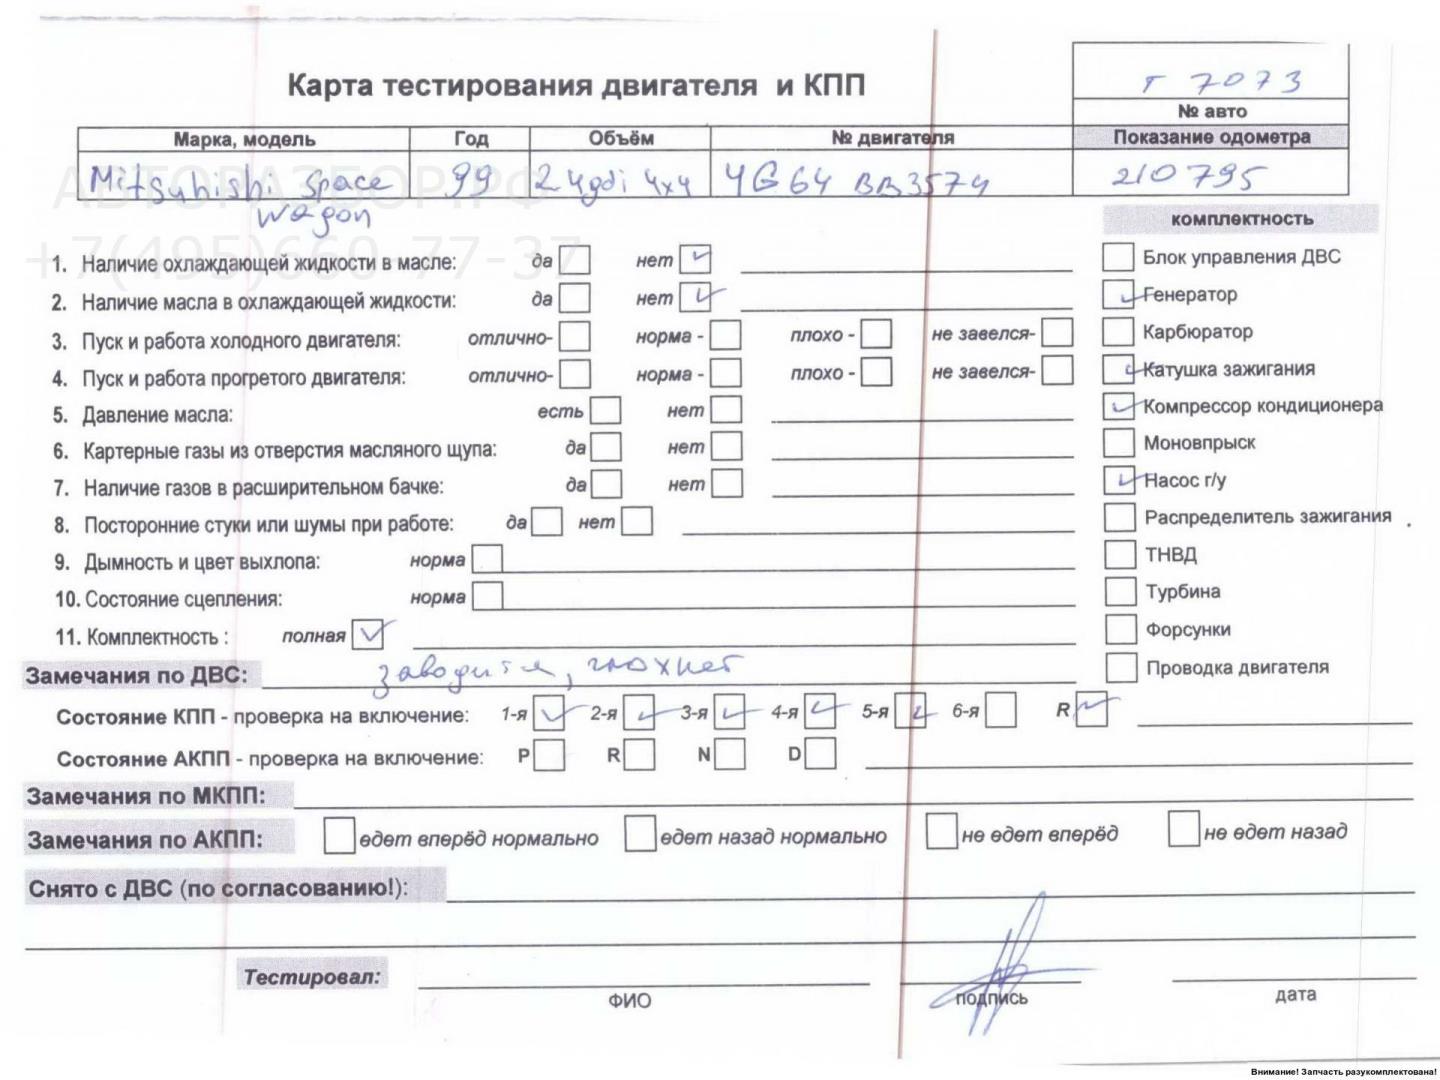 т 7073
Карта тестирования двигателя и КПП
№ авто
Марка, модель Год Объём № двигателя Показание одометра
Mitsubishi Space 99 2.4gdi 4x4 4G64 BB3574 210795
wagon
АВТОРАЗБОР.РФ
+7(495)660-77-37
комплектность
1. Наличие охлаждающей жидкости в масле: да нет Блок управления ДВС
2. Наличие масла в охлаждающей жидкости: да нет Генератор
3. Пуск и работа холодного двигателя: отлично- норма - плохо - не завелся- Карбюратор
4. Пуск и работа прогретого двигателя: отлично- норма - плохо - не завелся- Катушка зажигания
5. Давление масла: есть нет Компрессор кондиционера
6. Картерные газы из отверстия масляного щупа: да нет Моновпрыск
7. Наличие газов в расширительном бачке: да нет Насос г/у
8. Посторонние стуки или шумы при работе: да нет Распределитель зажигания
9. Дымность и цвет выхлопа: норма ТНВД
10. Состояние сцепления: норма Турбина
11. Комплектность : полная Форсунки
Замечания по ДВС: заводится, глохнет Проводка двигателя
Состояние КПП - проверка на включение: 1-я 2-я 3-я 4-я 5-я 6-я R
Состояние АКПП - проверка на включение: P R N D
Замечания по МКПП:
Замечания по АКПП: едет вперёд нормально едет назад нормально не едет вперёд не едет назад
Снято с ДВС (по согласованию!):
Тестировал:
ФИО подпись дата
Внимание! Запчасть разукомплектована!